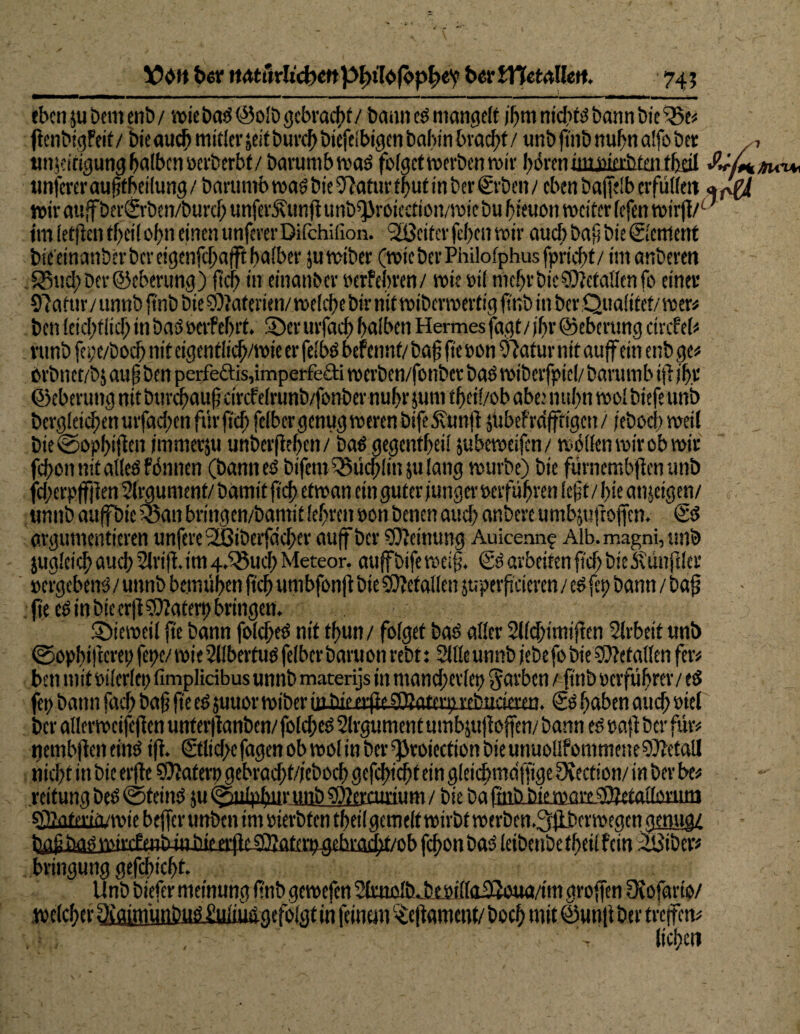 Von der natürlichen Philosophey der Metallen. 743
eben zu dem end / wie das Gold gebracht / dann es mangelt jhm nichts dann die Be⸗
stendigkeit / die auch mitler zeit durch dieselbigen dahin bracht / und sind nuhn also der
unzeitigung halben verderbt / darumb was folget werden wir hören im vierdten theil
unserer außtheilung / darumb was die Natur thut in der Erden / eben dasselb erfüllen
wir auff der Erden/durch unser Kunst und Proiection/wie du hieuon weiter lesen wirst/
im letsten theil ohn einen unserer Dischision. Weiter sehen wir auch daß die Element
die einander der eigenschafft halber zu wider (wie der Philosphus spricht / im anderen
Buch Der Geberung) sich in einander verkehren / wie vil mehr die Metallen so einer
Natur / unnd sind die Materien / welche dir nit widerwertig sind in der Qualitet / wer⸗
den leichtlich in das verkehrt. Der ursach halben Hermes sagt / jhr Geberung circkel⸗
rund seye/doch nit eigentlich/wie er selbs bekennt/ daß sie von Natur nit auff ein end ge⸗
ordnet/dz auß den perfectis,imperfecti werden/sonder das widerspiel/ darumb ist jhr
Geberung nit durchauß circkelrund/sonder nuhr zum theil/ob aber nuhn wol diese und
dergleichen ursachen für sich selber genug weren dise Kunst zubekräfftigen / jedoch weil
die Sophisten jmmerzu understehen / das gegentheil zubeweisen / wöllen wir ob wir
schon nit alles können (dann es disem Büchlin zu lang wurde) die fürnembsten und
scherpfsten Argument/ damit sich etwan ein guter junger verführen leßt / hie anzeigen /
unnd auff die Ban bringen/damit lehren von denen auch andere umbzustossen. Es
argumentieren unsere Widersächer auff der Meinung Auicennę Alb. magni, und
zugleich auch Arist. im 4. Buch Meteor. auff dise weiß. Es arbeiten sich die Künstler
vergebens / unnd bemühen sich umbsonst die Metallen zuperficieren / es sey dann / daß
sie es in die erst Matery bringen.
Dieweil sie dann solches nit thun / folget das aller Alchimisten Arbeit und
Sophisterey seye/ wie Albertus selber daruon redt: Alle unnd jede so die Metallen fer⸗
ben mit vilerley simplicibus unnd materijs in mancherley Farben / sind verführer / es
sey dann sach daß sie es zuuor wider in die erste Matery reducieren. Es haben auch viel
der allerweisesten unterstanden/ solches Argument umbzustossen/ dann es vast der für⸗
nembsten eins ist. Etliche sagen ob wol in der Proiection die unuollkommene Metall
nicht in die erste Matery gebracht/jedoch geschicht ein gleichmässige Rection/ in der be⸗
reitung des Steins zu Sulphur und Mercurium / die da sind die ware Metallorum
Materia/wie besser unden im vierdten theil gemelt wirdt werden.Ist derwegen genug/
daß das wirckend in die erste Matery gebracht/ob schon das leidende theil kein Wider⸗
bringung geschicht.
Und dieser meinung sind gewesen Arnold. de villa Noua/im grossen Rosario/
welcher Raimundus Lulius gefolgt in seinem Testament/ doch mit Gunst der treffen⸗
lichen